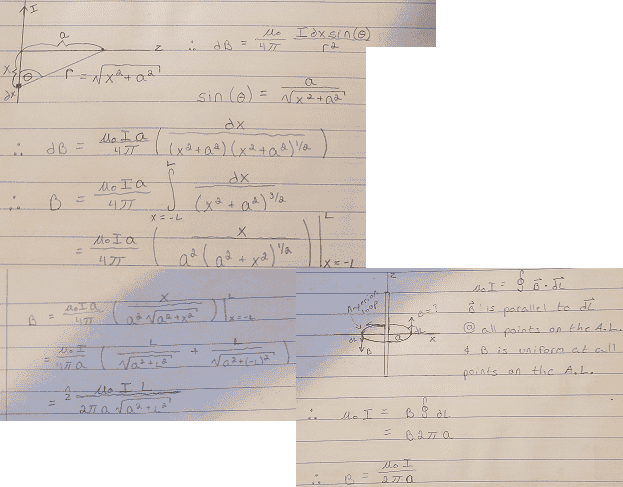 I
a
z
x θ r = √(x² + a²)
dx
∴ dB = μ₀/4π I dx sin(θ)/r²
sin(θ) = a/√(x² + a²)
∴ dB = μ₀Ia/4π ( dx/((x² + a²)(x² + a²)^1/2) )
∴ B = μ₀Ia/4π ∫_{x=-L}^{L} dx/(x² + a²)^3/2
= μ₀Ia/4π ( x/(a²(a² + x²)^1/2) ) |_{x=-L}^{L}
B = μ₀Ia/4π ( x/(a²√(a² + x²)) ) |_{x=-L}^{L}
= μ₀I/4πa ( L/√(a² + L²) + L/√(a² + (-L)²) )
= μ₀IL/(2πa√(a² + L²))
z
Amperian
loop
B = ?
dL
a
x
dL
B
μ₀I = ∮ B⃗ · dL⃗
B⃗ is parallel to dL⃗
@ all points on the A.L.
& B is uniform at all
points on the A.L.
∴ μ₀I = B ∮ dL
= B2πa
∴ B = μ₀I/2πa